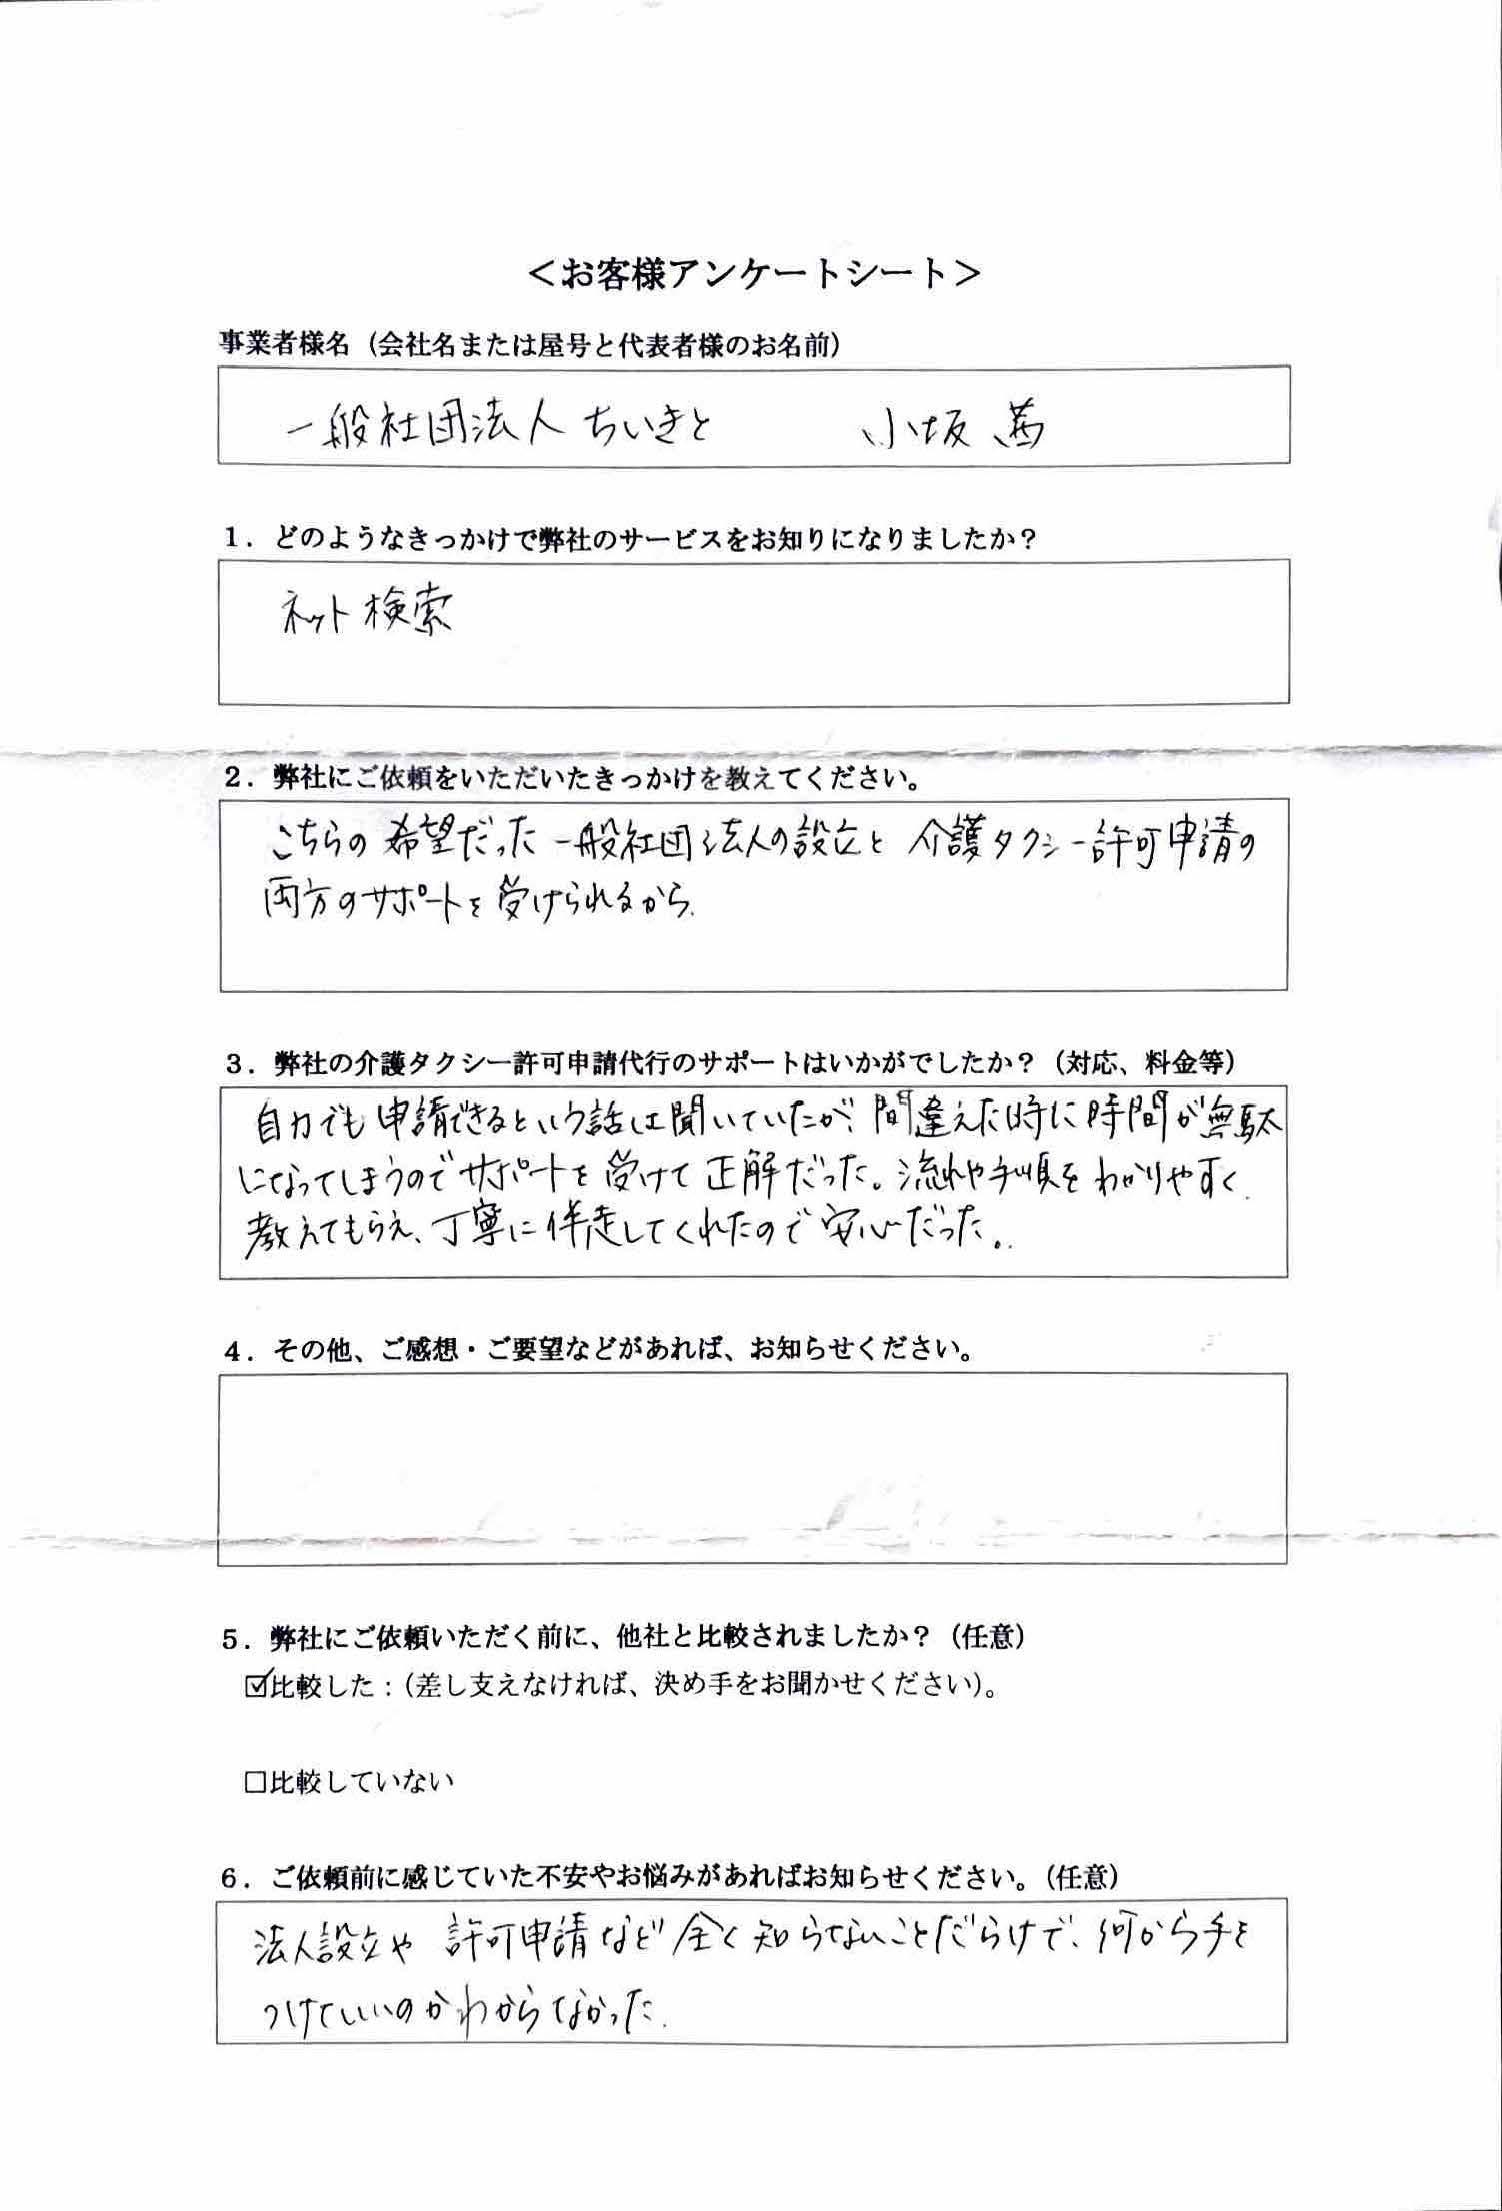 ＜お客様アンケートシート＞
事業者様名（会社名または屋号と代表者様のお名前）
一般社団法人ちいきと　小坂 茜
１．どのようなきっかけで弊社のサービスをお知りになりましたか？
ネット検索
２．弊社にご依頼をいただいたきっかけを教えてください。
こちらの希望だった一般社団法人の設立と介護タクシー許可申請の
両方のサポートを受けられるから．
３．弊社の介護タクシー許可申請代行のサポートはいかがでしたか？（対応、料金等）
自力でも申請できるという話は聞いていたが、間違えた時に時間が無駄
になってしまうのでサポートを受けて正解だった。流れや手順をわかりやすく
教えてもらえ、丁寧に伴走してくれたので安心だった。
４．その他、ご感想・ご要望などがあれば、お知らせください。
５．弊社にご依頼いただく前に、他社と比較されましたか？（任意）
☑比較した：（差し支えなければ、決め手をお聞かせください）。
□比較していない
６．ご依頼前に感じていた不安やお悩みがあればお知らせください。（任意）
法人設立や許可申請など全く知らないことだらけで、何から手を
つけていいのかわからなかった．